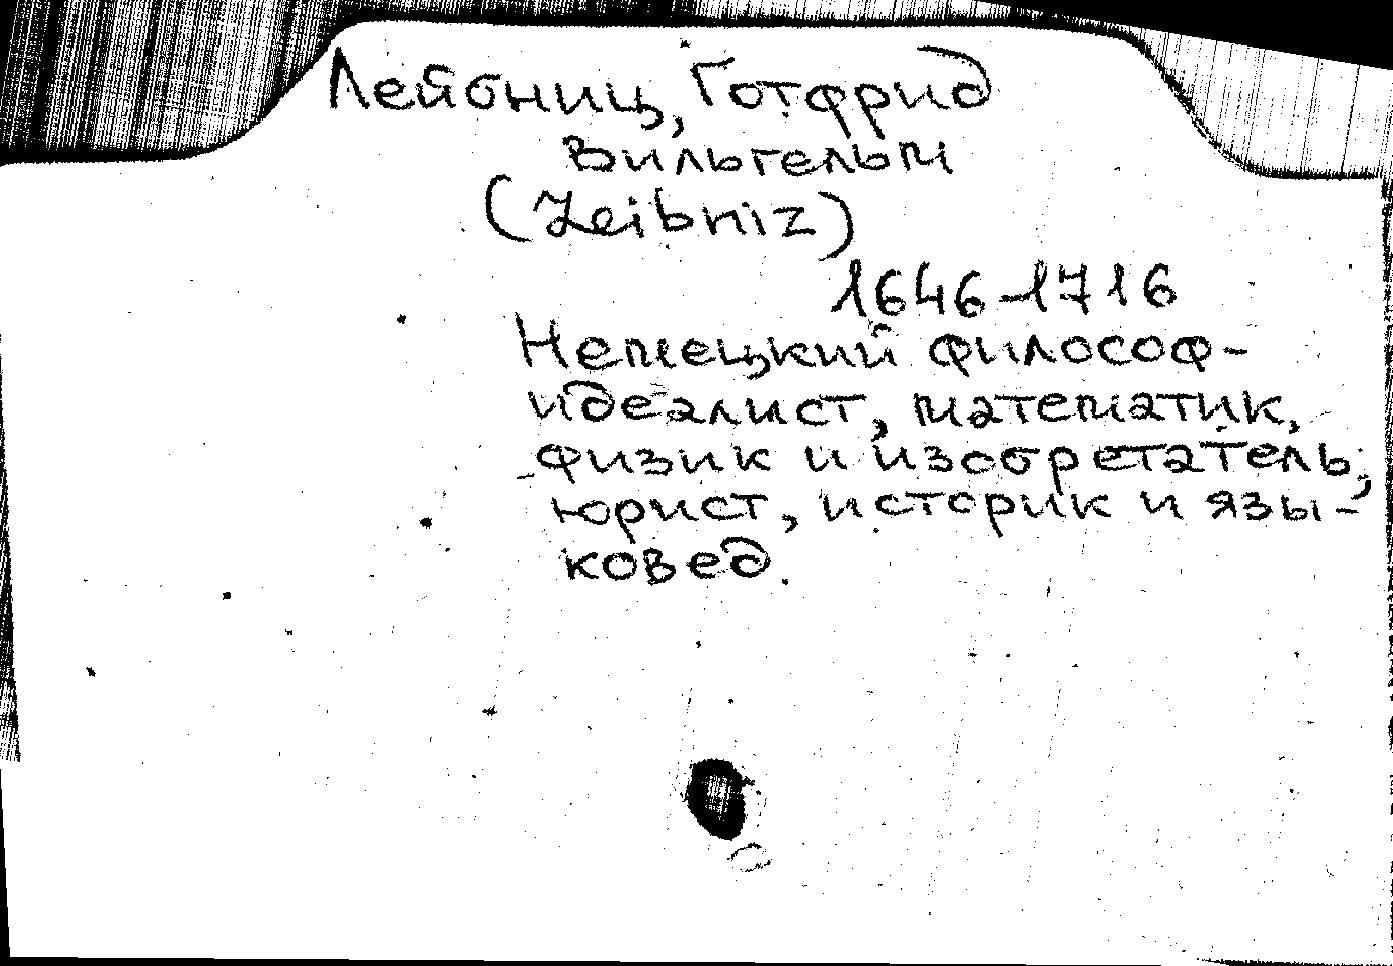 Лейбниц, Готфрид
Вильгельм
(Leibniz)
1646-1716
Немецкий философ-
идеалист, математик,
физик и изобретатель,
юрист, историк и язы-
ковед.